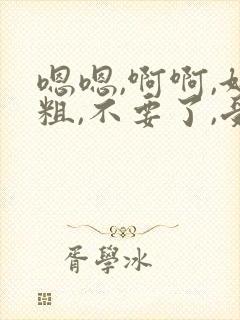 嗯嗯,啊啊,
粗,不要了,
胥學冰